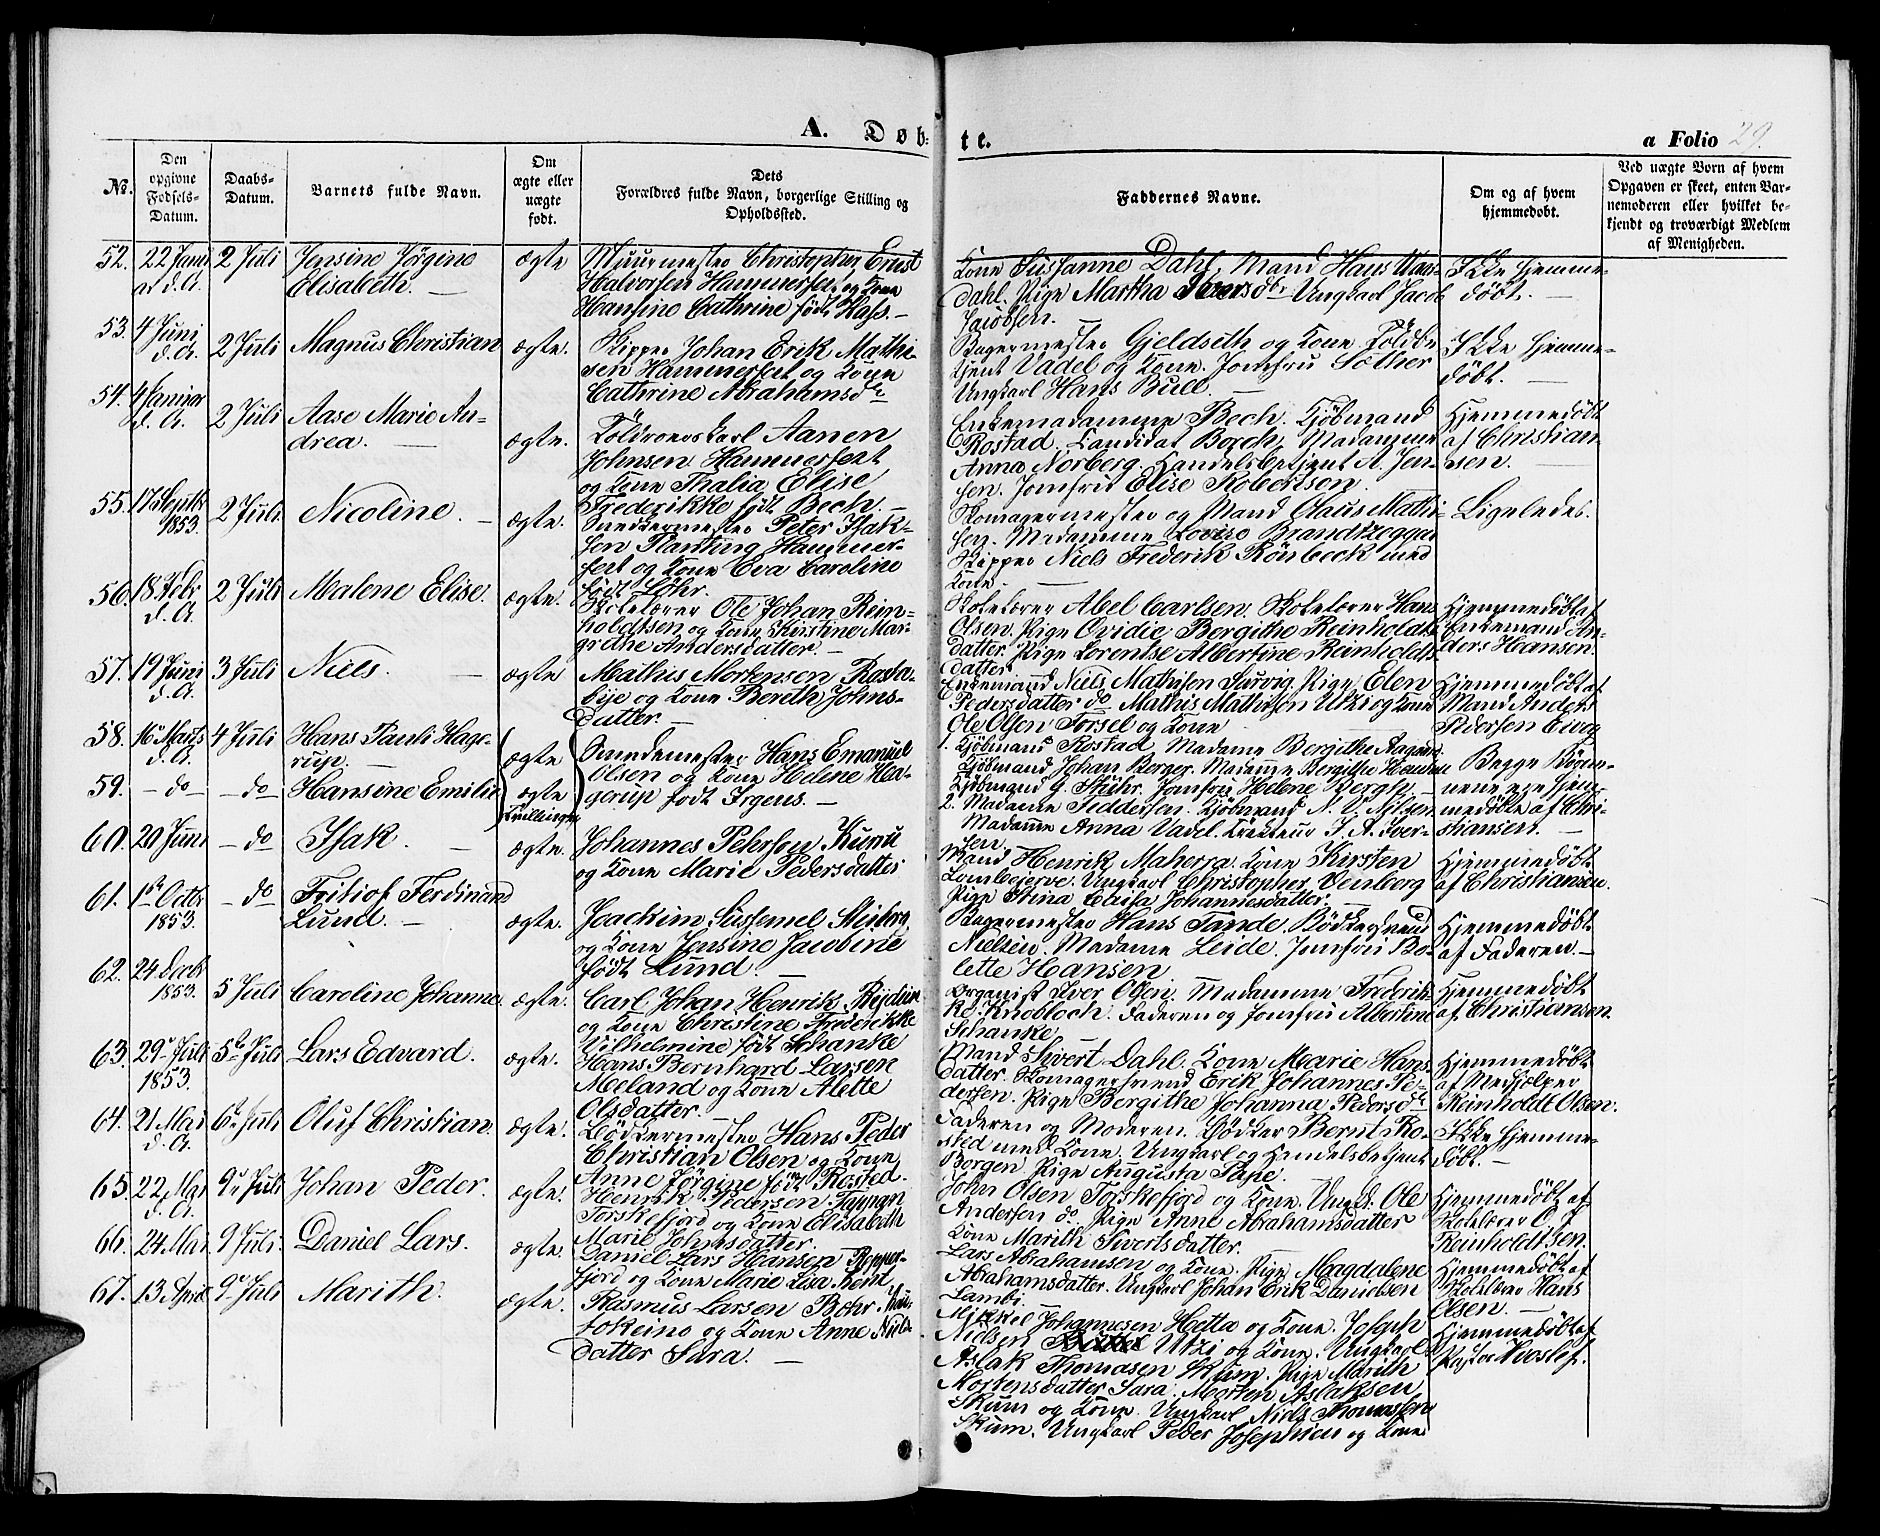 A. Døb-
te.
a Folio 29.
No.
Den
opgivne
Fødsels-
Datum.
Daabs-
Datum.
Barnets fulde Navn.
Om
ægte eller
uægte
født.
Dets
Forældres fulde Navn, borgerlige Stilling og
Opholdssted.
Faddernes Navne.
Om og af hvem
hjemmedøbt.
Ved uægte Børn af hvem
Opgaven er skeet, enten Bar-
nemoderen eller hvilket be-
kjendt og troværdigt Medlem
af Menigheden.
52.
22 Januar
d. A.
2 Juli
Jensine Jørgine
Elisabeth.
ægte
Muurmester Christopher Ernst
Halvorsen Hammerfest og Kone
Hansine Cathrine født Hass.
Kone Susanne Dahl, Mand Hans
Dahl. Pige Martha Iversdr. Ungkarl Jacob
Jacobsen.
Ikke hjemme-
døbt.
53.
4 Juni
d. A.
2 Juli
Magnus Christian
ægte.
Skipper Johan Erik Mathi-
sen Hammerfest og Kone
Cathrine Abrahamsdr
Bagermester Gjeldseth og Kone. Toldbe-
tjent Vadel og Kone. Jomfru Sæther
Ungkarl Hans Bull.
Ikke hjemme-
døbt.
54.
4 Januar
d. A.
2 Juli
Aase Marie An-
drea.
ægte.
Toldroerskarl Aanen
Johnsen Hammerfest
og Kone Thalia Elise
Frederikke født Bech.
Enkemadamme Bech. Kjøbmand
Rostad, Candidat Borch, Madamme
Anna Norberg, Handelsbetjent A. Jen-
sen. Jomfru Elise Robertson.
Hjemmedøbt
af Christian-
sen.
55.
17 Septbr
1853.
2 Juli
Nicoline.
ægte.
Snedkermester Peter Isak-
sen Planting Hammer-
fest og Kone Eva Caroline
født Løhr.
Skomagermester og Mand Claus Mathi-
sen. Madamme Lovise Brandtzegger
Skipper Niels Frederik Rønbeck med
Kone.
Ligeledes.
56.
18 Febr
d. A.
2 Juli
Malene Elise.
ægte.
Skolelærer Ole Johan Rein-
holdtsen og Kone Kirstine Mar-
grethe Andersdatter.
Skolelærer Abel Carlsen. Skolelærer Hans
Olsen. Pige Ovidie Bergithe Reinholdts-
datter. Pige Lorentse Albertine Reinholdts-
datter
Hjemmedøbt af
Enkemand An-
ders Hansen.
57.
19 Juni
d. A.
3 Juli
Niels.
ægte
Mathis Mortensen Rosta-
bye og Kone Berith Johns-
datter.
Enkemand Niels Mathisen Surrig. Pige Elen
Pedersdatter do Mathis Mathisen Utzi og Kone
Ole Olsen Torsel og Kone
Hjemmedøbt af
Mand Anders
Pedersen
58.
16 Marts
d. A.
4 Juli
Hans Pauli Hage-
rup.
ægte
Smedemester Hans Emanuel
Olsen og Kone Helene Ha-
gerup født Irgens.
1. Kjøbmand Rostad, Madame Bergithe Aagaard
Kjøbmand Johan Berger. Madamme Bergithe
Kjøbmand G. Stuhr. Jomfru Helene Bergh.
Begge Børne-
nene ere hjem-
medøbte af Chri-
stiansen.
59.
do
do
Hansine Emilie
ægte
Tvillinger
2. Madame Feddersen. Kjøbmand N. V. Nilsen
Madamme Anna Vadel. S. A. Iver-
sen.
60.
20 Juni
do
Isak.
ægte.
Johannes Petersen Kunru
og Kone Marie Pedersdatter
Mand Henrik Maherra. Kone Kirsten
Lombejerve. Ungkarl Christopher Venberg
Pige Stina Lovisa Johannesdatter.
Hjemmedøbt
af Christiansen.
61.
1ste Octbr
1853.
do
Fritiof Ferdinand
Lund.
ægte.
Joachim
og Kone Jensine Jacobine
født Lund.
Bagermester Hans Tande. Bødkersvend
Nielsen. Madame Leide. Jomfru Bo-
lette Hansen
Hjemmedøbt
af Faderen.
62.
24 Decbr
1853.
5 Juli
Caroline Johanne.
ægte.
Carl Johan Henrik
og Kone Christine Frederikke
Vilhelmine født Schanke
Organist Iver Olsen. Madamme Frederik-
ke Knobloch. Faderen og Jomfru Albertine
Schanke.
Hjemmedøbt
af Christiansen.
63.
29 Juli
1853.
5te Juli
Lars Edvard.
ægte.
Hans Bernhard Larsen
Meland og Kone Alette
Olsdatter.
Mand Sivert Dahl. Kone Marie Hans-
datter. Skomagersvend Erik Johannes Pe-
dersen. Pige Bergithe Johanna Pedersdr
Hjemmedøbt
af Medhjælper
Reinholdt Olsen.
64.
21 Mai
d. A.
6te Juli
Oluf Christian.
ægte.
Bødkermester Hans Peder
Christian Olsen og Kone
Anne Jørgine født Rosted.
Faderen og Moderen. Bødker Bernt Ro-
sted med Kone. Ungkarl og Handelsbetjent
Borgen. Pige Augusta Pape.
Ikke hjemme-
døbt.
65.
22 Mai
d. A.
9 Juli
Johan Peder.
ægte.
Henrik Pedersen
Torskefjord og Kone Elisabeth
Marie Johnsdatter.
John Olsen Torskefjord og Kone. Ungk. Ole
Andersen do. Pige Anne Abrahamsdatter
Kone Marith Sivertsdatter.
Hjemmedøbt af
Skolelærer O. J.
Reinholdtsen.
66.
24 Mai
9 Juli.
Daniel Lars.
ægte
Daniel Lars Hansen Repper-
fjord og Kone Marie Lisa
Lars Abrahamsen og Kone. Pige Magdalene
Abrahamsdatter. Ungkarl Johan Erik Danielsen
Lambi.
Hjemmedøbt af
Skolelærer Hans
Olsen.
67.
13 April
9 Juli
Marith.
ægte.
Rasmus Larsen Bohr Kau-
tokeino og Kone Anne Niels-
datter Sara.
Mikkel Johannesen Hætta og Kone. Joseph
Nielsen Utzi og Kone. Ungkarl
Aslak Thomasen Skum. Pige Marith
Mortensdatter Sara. Morten Aslaksen
Skum og Kone. Ungkarl Niels Thomassen
Skum. Ungkarl Peder Josephsen og Kone
Hjemmedøbt af
Pastor Hvoslef.